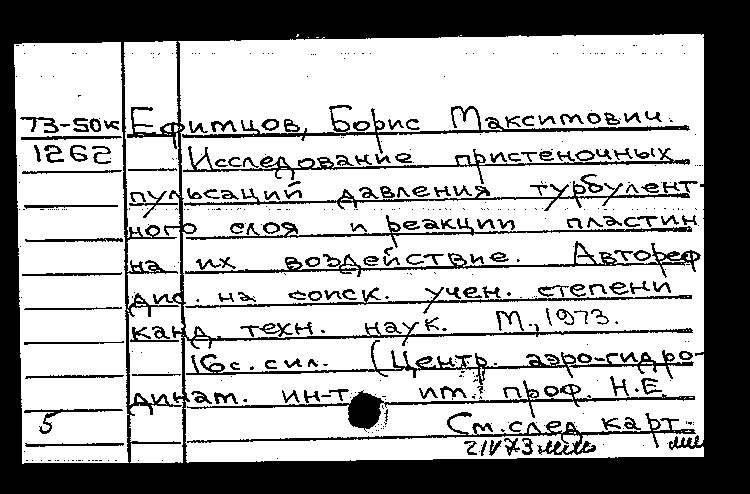 73-50к Ефимцов, Борис Максимович.
1262 Исследование пристеночных
пульсаций давления турбулент-
ного слоя и реакции пластин
на их воздействие. Автореф
дис. на соиск. учен. степени
канд. техн. наук. М., 1973.
16с. с ил. (Центр. аэро-гидро-
динам. ин-т им. проф. Н.Е.
5 См. след карт.